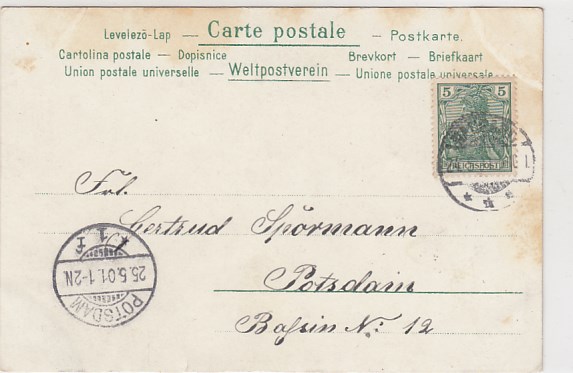 Levelezö-Lap — Carte postale — Postkarte.
Cartolina postale — Dopisnice Brevkort — Briefkaart
Union postale universelle — Weltpostverein — Unione postale universale
5 5
REICHSPOST
Frl.
Gertrud Spörmann
Potsdam
Bassin No: 12
POTSDAM
25.5.01.1-2N.
* 1 f